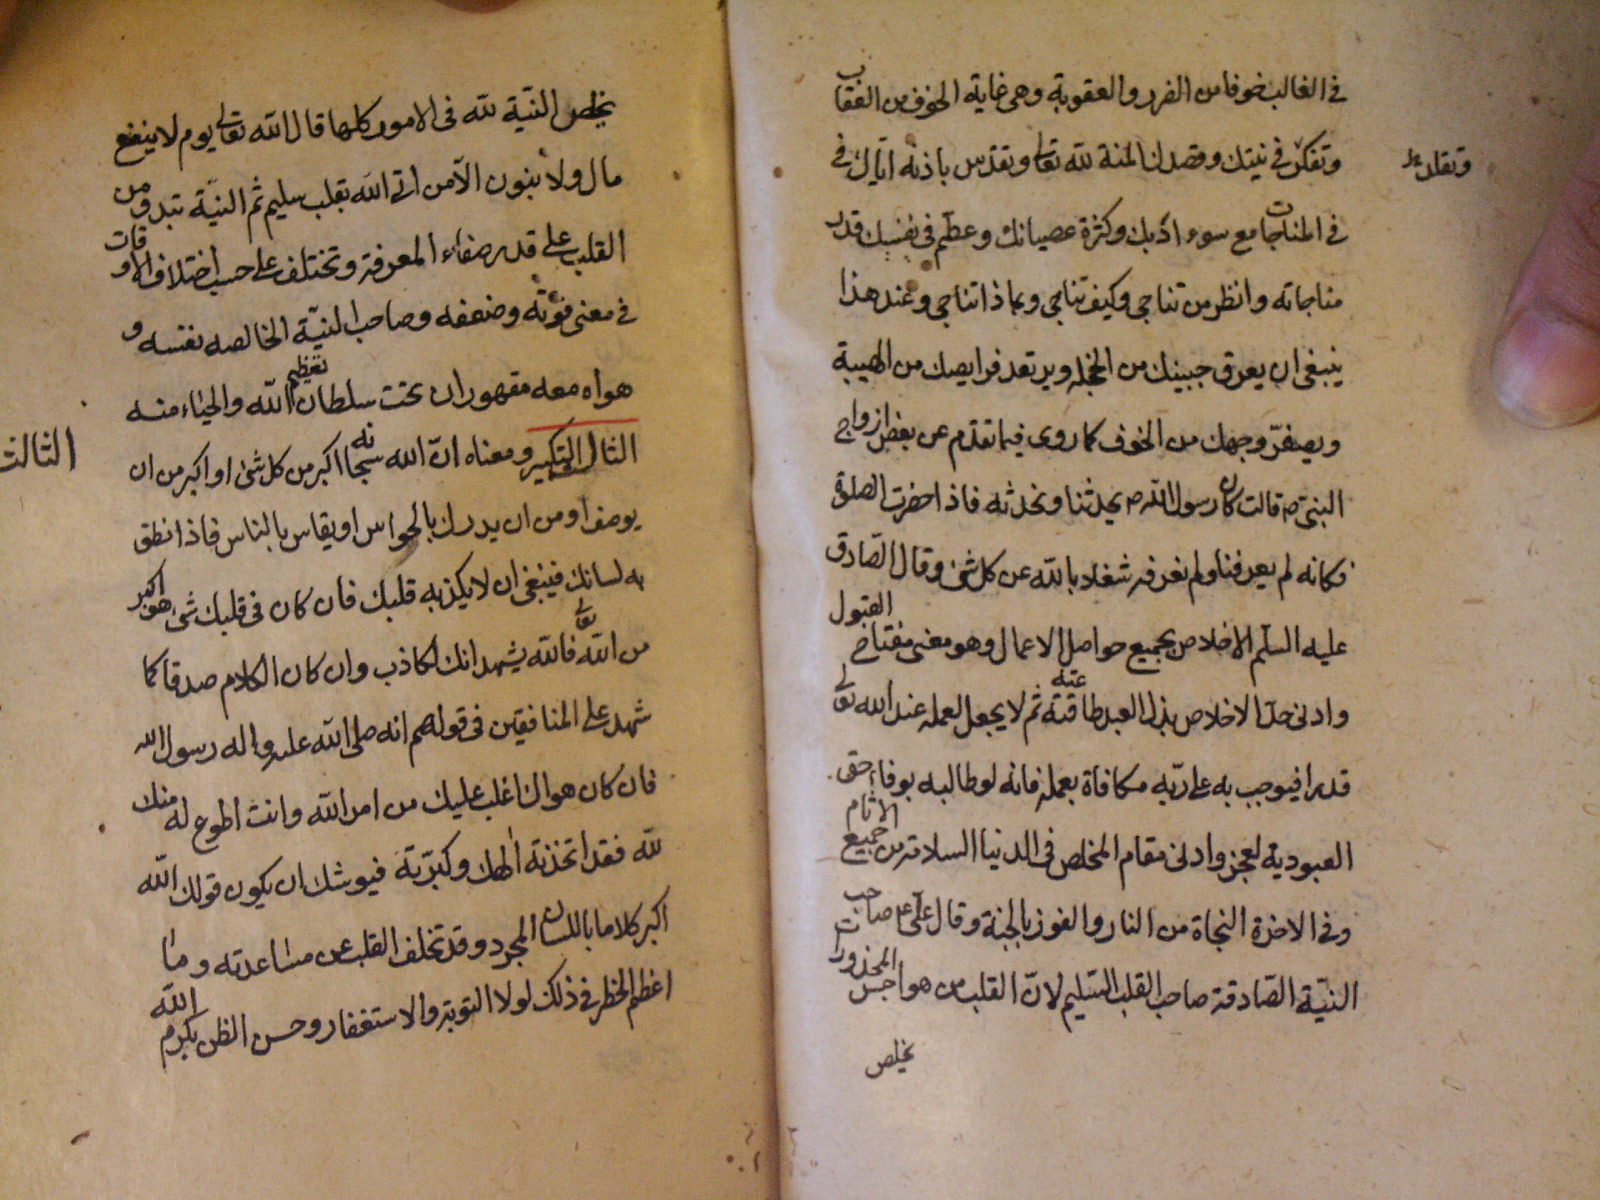 في الغالب خوفا من الضرر والعقوبة وهي غاية الخوف من العقاب
وتفكر في نيتك وقصدك المنة لله تعالى وتقدس باذنه اياك في
وتقلد
في المناجات مع سوء ادبك وكثرة عصيانك وعظم في نفسك قدر
مناجاته وانظر من تناجي وكيف تناجي وبماذا تناجي وعند هذا
ينبغي ان يعرق جبينك من الخجلة ويرتعد فرايصك من الهيبة
ويصفر وجهك من الخوف كما روى فيما تقدم عن بعض ازواج
النبي ص قالت كان رسول الله ص يحدثنا ونحدثه فاذا حضرت الصلوة
فكانه لم يعرفنا ولم نعرفه شغلا بالله عن كل شئ وقال الصادق
عليه السلم الاخلاص يجمع حواصل الاعمال وهو معنى مفتاح القبول
وادنى حد الاخلاص بذل العبد طاقته ثم لا يجعل لعمله عند الله تعالى
قدرا فيوجب به على ربه مكافاة بعمله فانه لو طالبه بوفاء حق
العبودية لعجز وادنى مقام المخلص في الدنيا السلامة من جميع الاثام
وفي الاخرة النجاة من النار والفوز بالجنة وقال ع صاحب
النية الصادقة صاحب القلب السليم لان القلب من هواجس المحذورات
يخلص
يخلص النية لله في الامور كلها قال الله تعالى يوم لا ينفع
مال ولا بنون الا من اتى الله بقلب سليم ثم النية تبدو من
القلب على قدر صفاء المعرفة وتختلف على حسب اختلاف الاوقات
في معنى قوته وضعفه وصاحب النية الخالصه نفسه و
هواه معه مقهوران تحت سلطان تعظيم الله والحياء منه
الثالث التكبير ومعناه ان الله سبحانه اكبر من كل شئ او اكبر من ان
الثالث
يوصف او من ان يدرك بالحواس او يقاس بالناس فاذا نطق
به لسانك فينبغي ان لا يكذبه قلبك فان كان في قلبك شئ هو اكبر
من الله تعالى فالله يشهد انك لكاذب وان كان الكلام صدقا كما
شهد على المنافقين في قولهم انه صلى الله عليه واله رسول الله
فان كان هواك اغلب عليك من امر الله وانت اطوع له منك
لله فقد اتخذته الهك وكبرته فيوشك ان يكون قولك الله
اكبر كلاما باللسان المجرد وقد تخلف القلب عن مساعدته وما
اعظم الخطر في ذلك لولا التوبة والاستغفار وحسن الظن بكرم الله